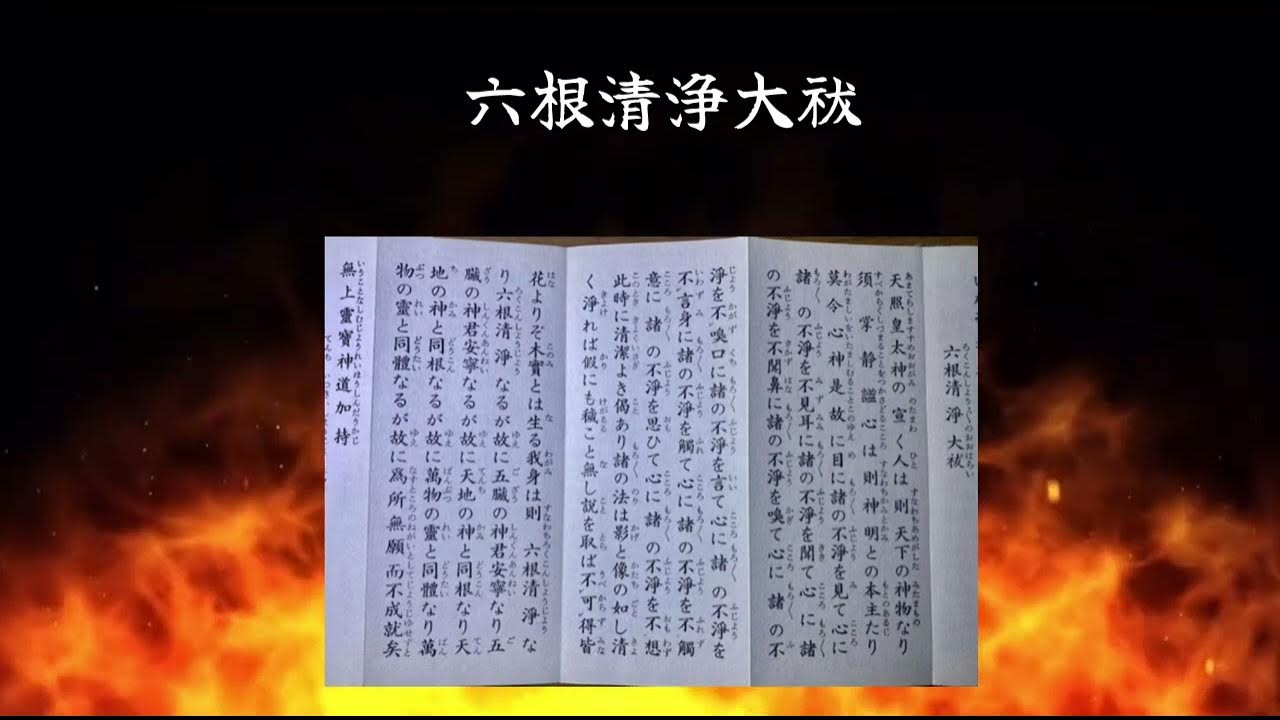 六根清浄大祓
六根清淨大祓
天照皇太神の宣く人は則天下の神物なり
須掌靜謐心は則神明との本主たり
莫令心神是故に目に諸の不淨を見て心に
諸の不淨を不見耳に諸の不淨を聞て心に諸
の不淨を不聞鼻に諸の不淨を嗅て心に諸の不
淨を不嗅口に諸の不淨を言て心に諸の不淨を
不言身に諸の不淨を觸て心に諸の不淨を不觸
意に諸の不淨を思ひて心に諸の不淨を不想
此時に清潔よき偈あり諸の法は影と像の如し清
く淨れば假にも穢こと無し説を取ば不可得皆
花よりぞ木實とは生る我身は則六根清淨な
り六根清淨なるが故に五臓の神君安寧なり五
臓の神君安寧なるが故に天地の神と同根なり天
地の神と同根なるが故に萬物の靈と同體なり萬
物の靈と同體なるが故に爲所無願而不成就矣
無上靈寶神道加持